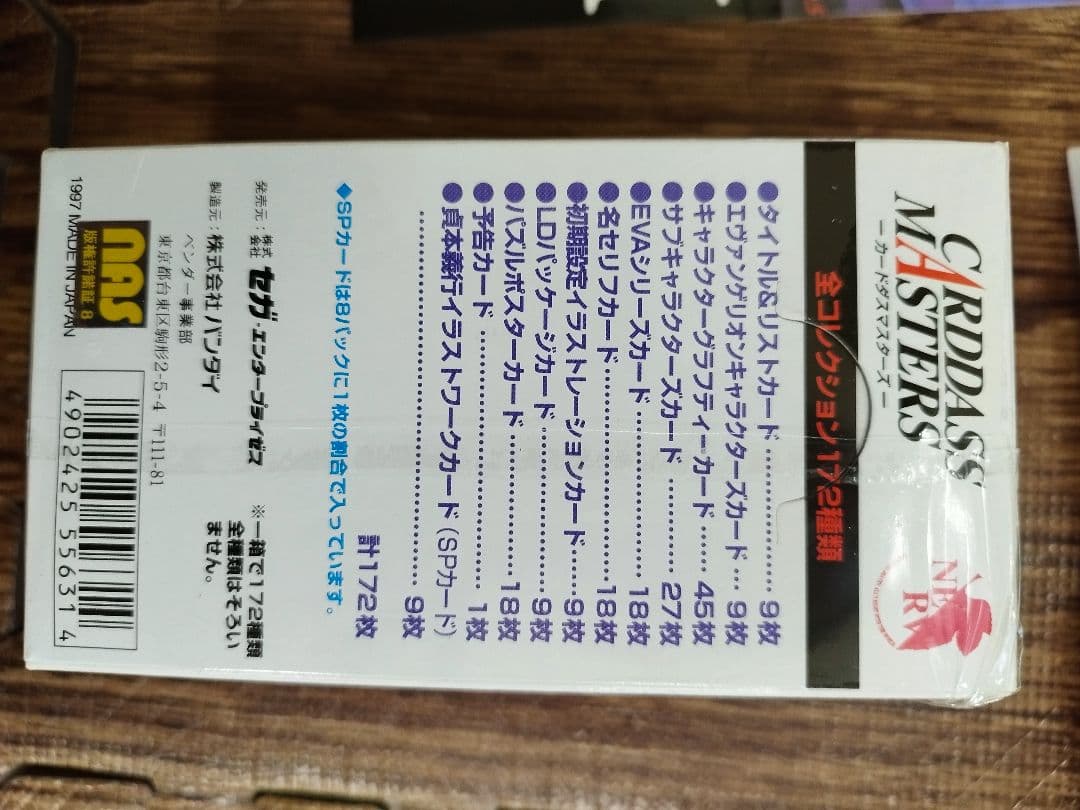 CARDDASS
MASTERS
－カードダスマスターズ－
NERV
全コレクション172種類
●タイトル&リストカード……………9枚
●エヴァンゲリオンキャラクターズカード…9枚
●キャラクターグラフティーカード……45枚
●サブキャラクターズカード…………27枚
●EVAシリーズカード…………………18枚
●名セリフカード………………………18枚
●初期設定イラストレーションカード……9枚
●LDパッケージカード…………………9枚
●パズルポスターカード………………18枚
●予告カード……………………………1枚
●貞本義行イラストワークカード(SPカード)
……………………………………………9枚
計172枚
◆SPカードは8パックに1枚の割合で入っています。
発売元：株式会社 セガ・エンタープライゼス
製造元：株式会社 バンダイ
ベンダー事業部
東京都台東区駒形2-5-4 〒111-81
※一箱で172種類
全種類はそろい
ません。
nas
版権許諾証 8
1997 MADE IN JAPAN
4902425556314